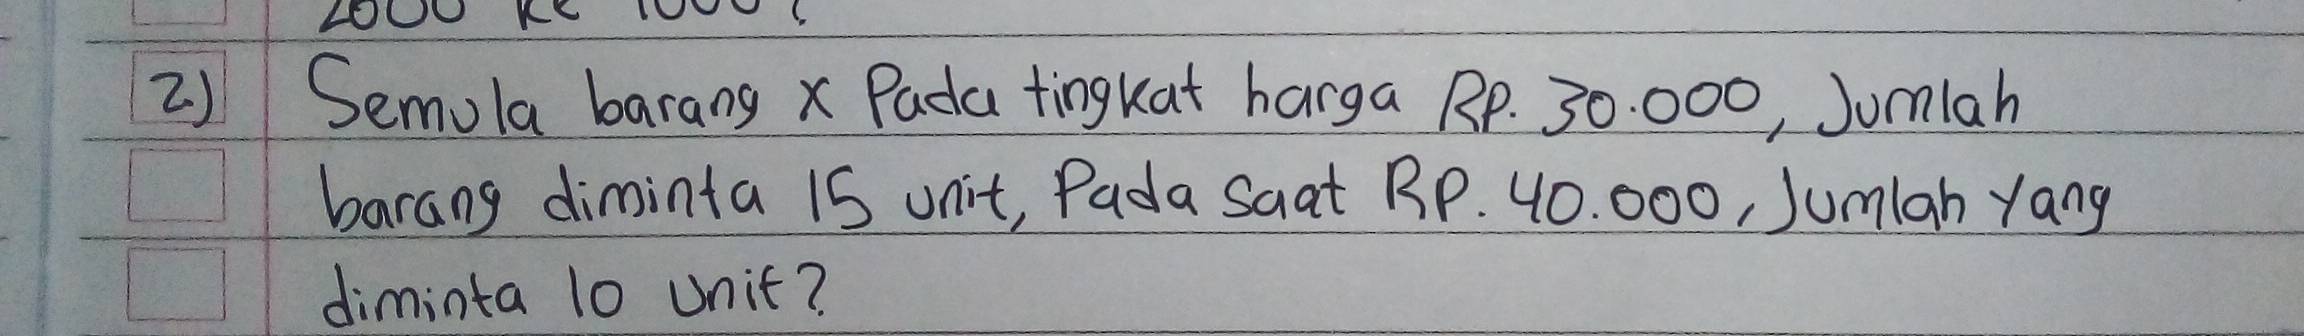 2000 ke 1000?
2) Semula barang x Pada tingkat harga Rp. 30.000, Jumlah
barang diminta 15 unit, Pada saat Rp. 40.000, Jumlah yang
diminta 10 unit?